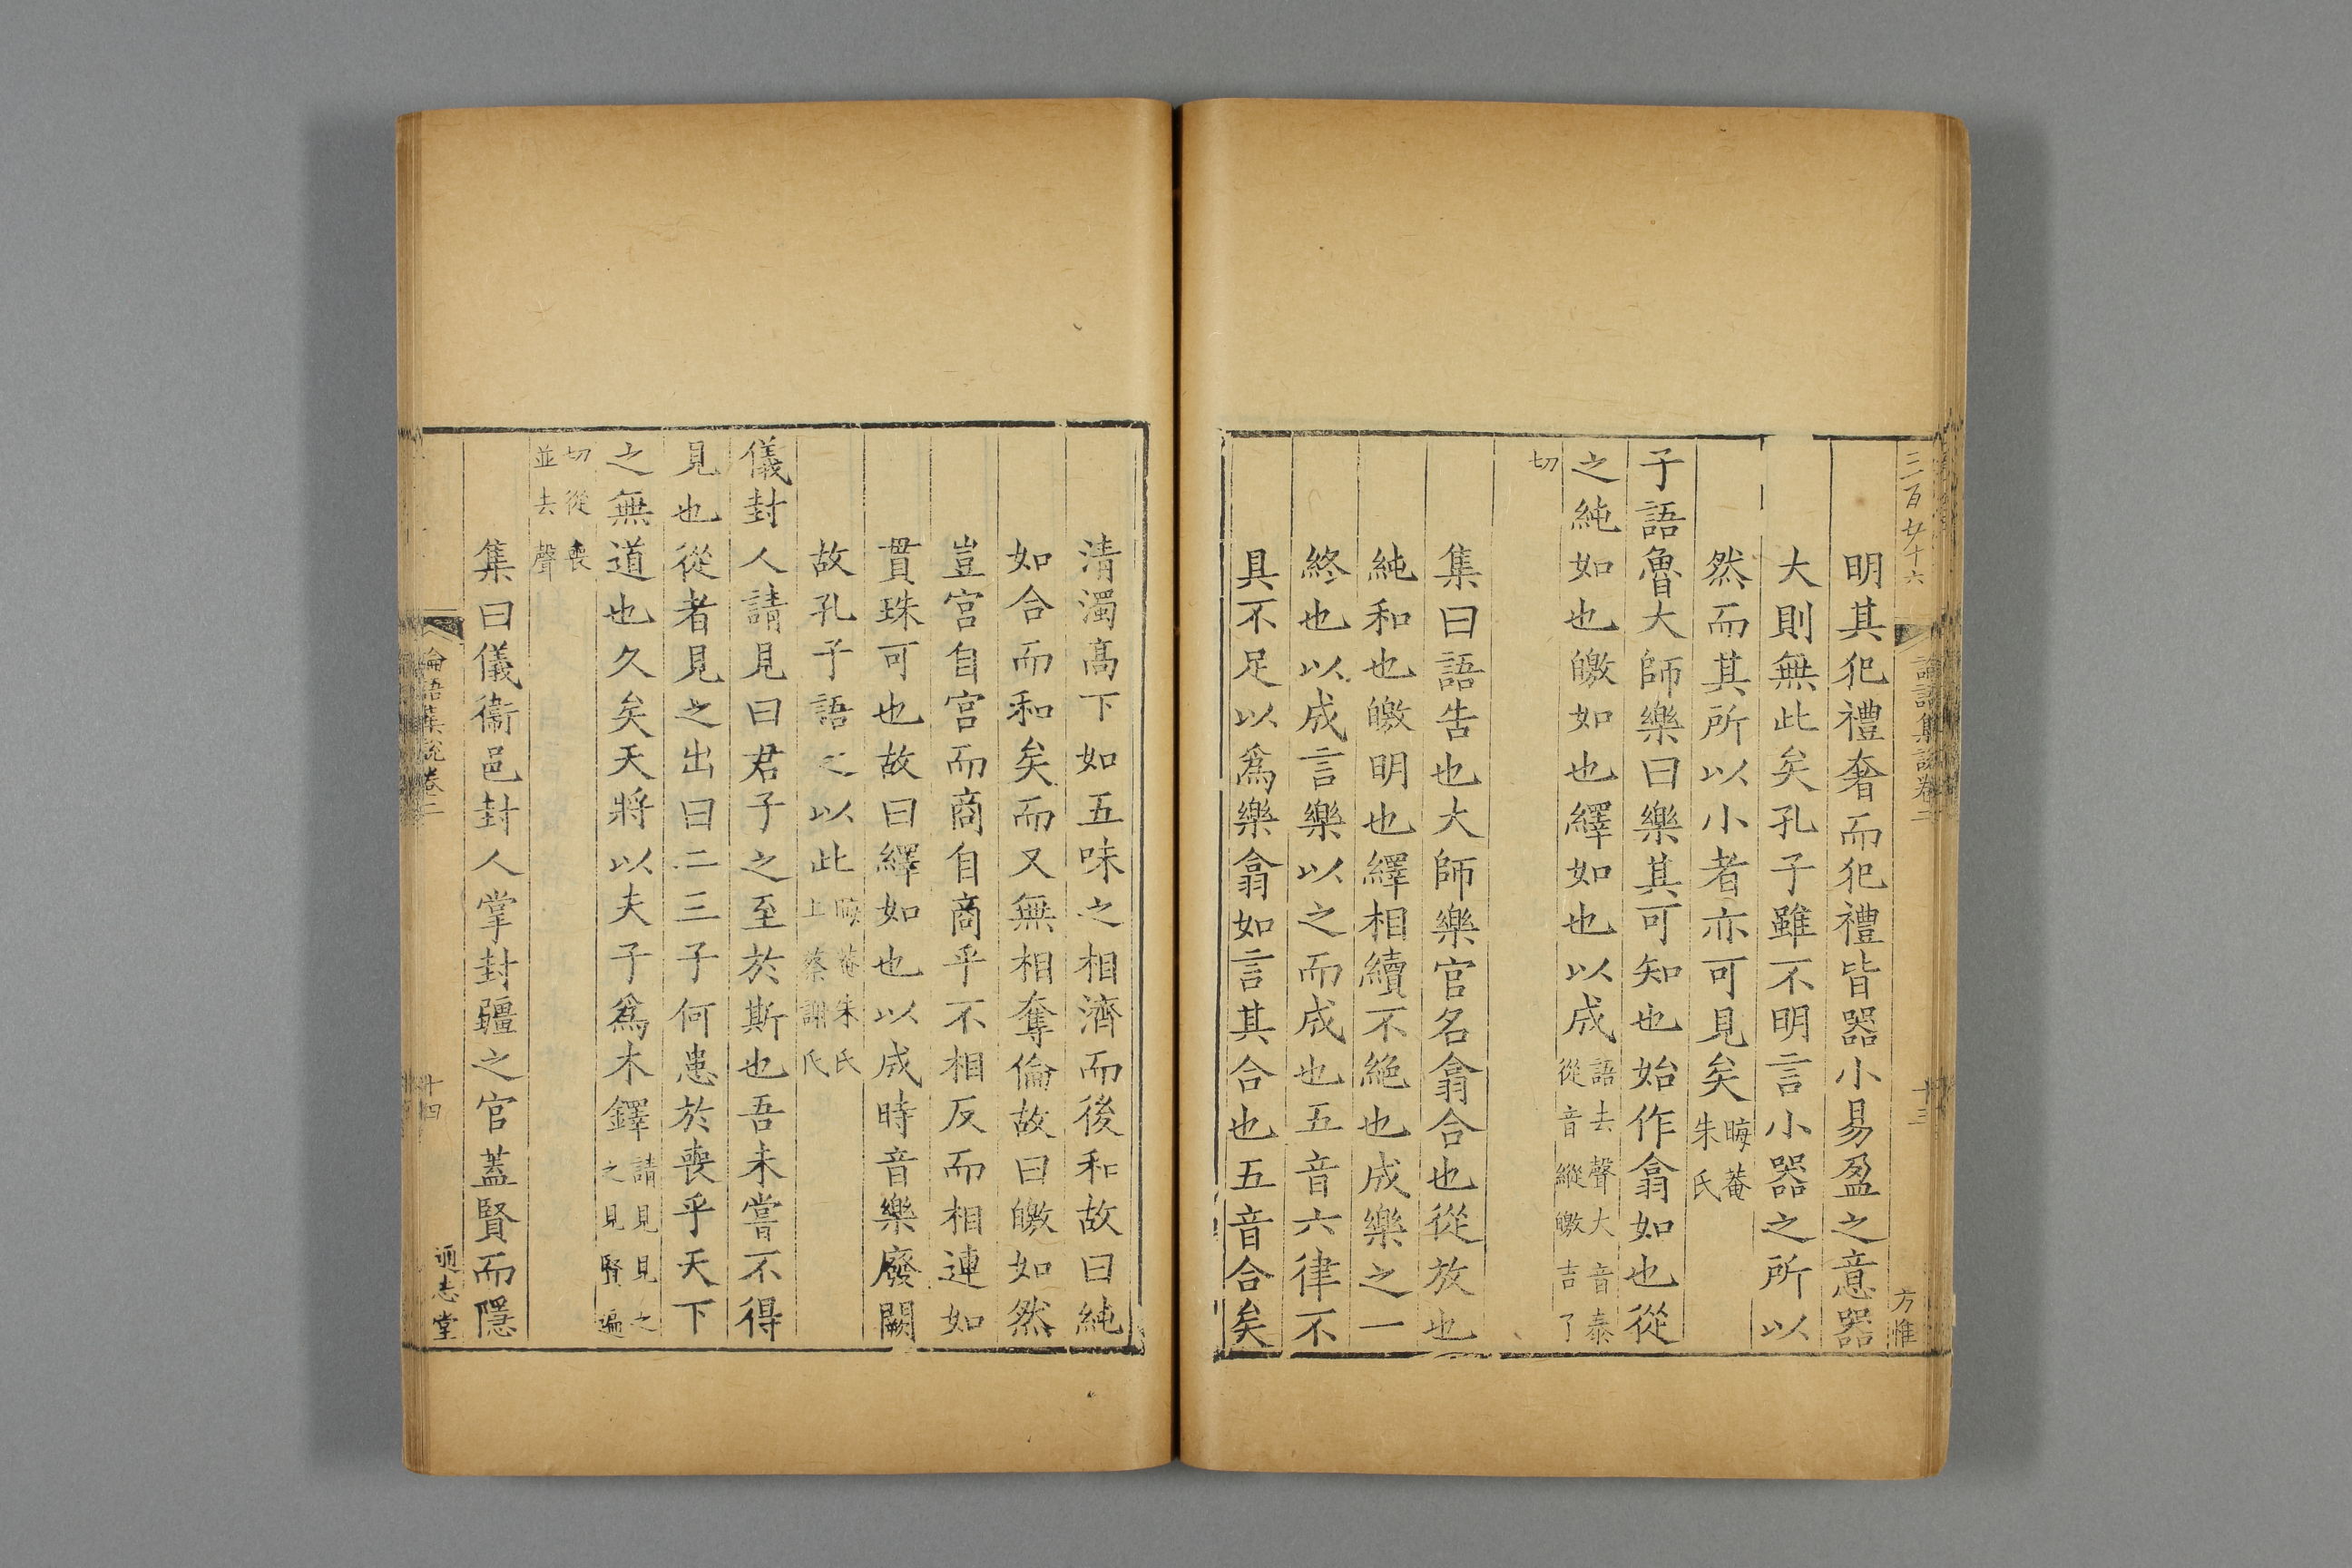 三百廿十六
論語集說卷二
十三
方惟
明其犯禮奢而犯禮皆器小易盈之意器
大則無此矣孔子雖不明言小器之所以
然而其所以小者亦可見矣晦菴朱氏
子語魯大師樂曰樂其可知也始作翕如也從
之純如也皦如也繹如也以成語去聲大音泰從音縱皦吉了
切
集曰語告也大師樂官名翕合也從放也
純和也皦明也繹相續不絕也成樂之一
終也以成言樂以之而成也五音六律不
具不足以爲樂翕如言其合也五音合矣
清濁高下如五味之相濟而後和故曰純
如合而和矣而又無相奪倫故曰皦如然
豈宮自宮而商自商乎不相反而相連如
貫珠可也故曰繹如也以成時音樂廢闕
故孔子語之以此晦菴朱氏上蔡謝氏
儀封人請見曰君子之至於斯也吾未嘗不得
見也從者見之出曰二三子何患於喪乎天下
之無道也久矣天將以夫子爲木鐸請見見之之見賢遍
切從喪並去聲
集曰儀衞邑封人掌封疆之官蓋賢而隱
論語集說卷二
十四
通志堂